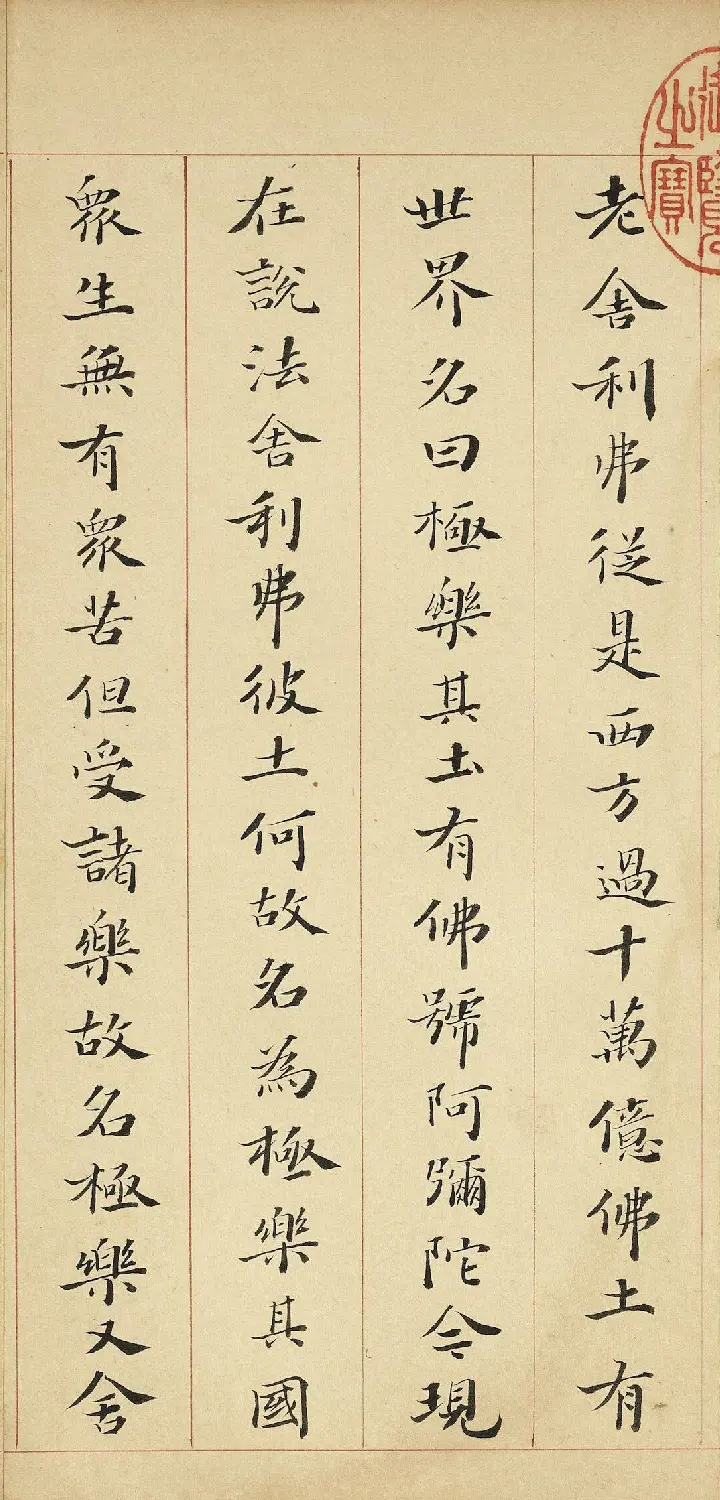 老舍利弗從是西方過十萬億佛土有
世界名曰極樂其土有佛號阿彌陀今現
在說法舍利弗彼土何故名為極樂其國
眾生無有眾苦但受諸樂故名極樂又舍